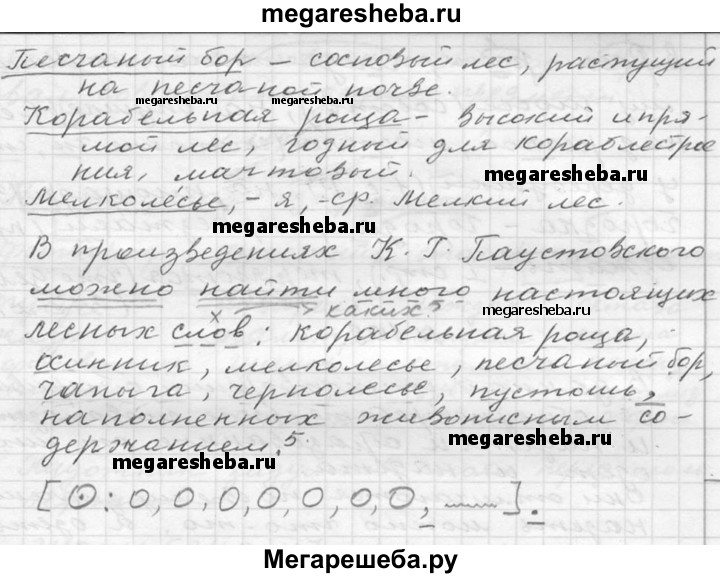 megaresheba.ru
Песчаный бор – сосновый лес, растущий
на песчаной почве.
megaresheba.ru megaresheba.ru
Корабельная роща – высокий и пря-
мой лес, годный для кораблестрое
ния, мачтовый.
megaresheba.ru
Мелколесье, -я, -ср. Мелкий лес.
megaresheba.ru
В произведениях К. Г. Паустовского
можно найти много настоящих
х каких? megaresheba.ru
лесных слов: корабельная роща,
осинник, мелколесье, песчаный бор,
чапыга, чернолесье, пустошь,
наполненных живописным со-
держанием.5
megaresheba.ru
megaresheba.ru
[⊙: О, О, О, О, О, О, О, ].
Мегарешеба.ру